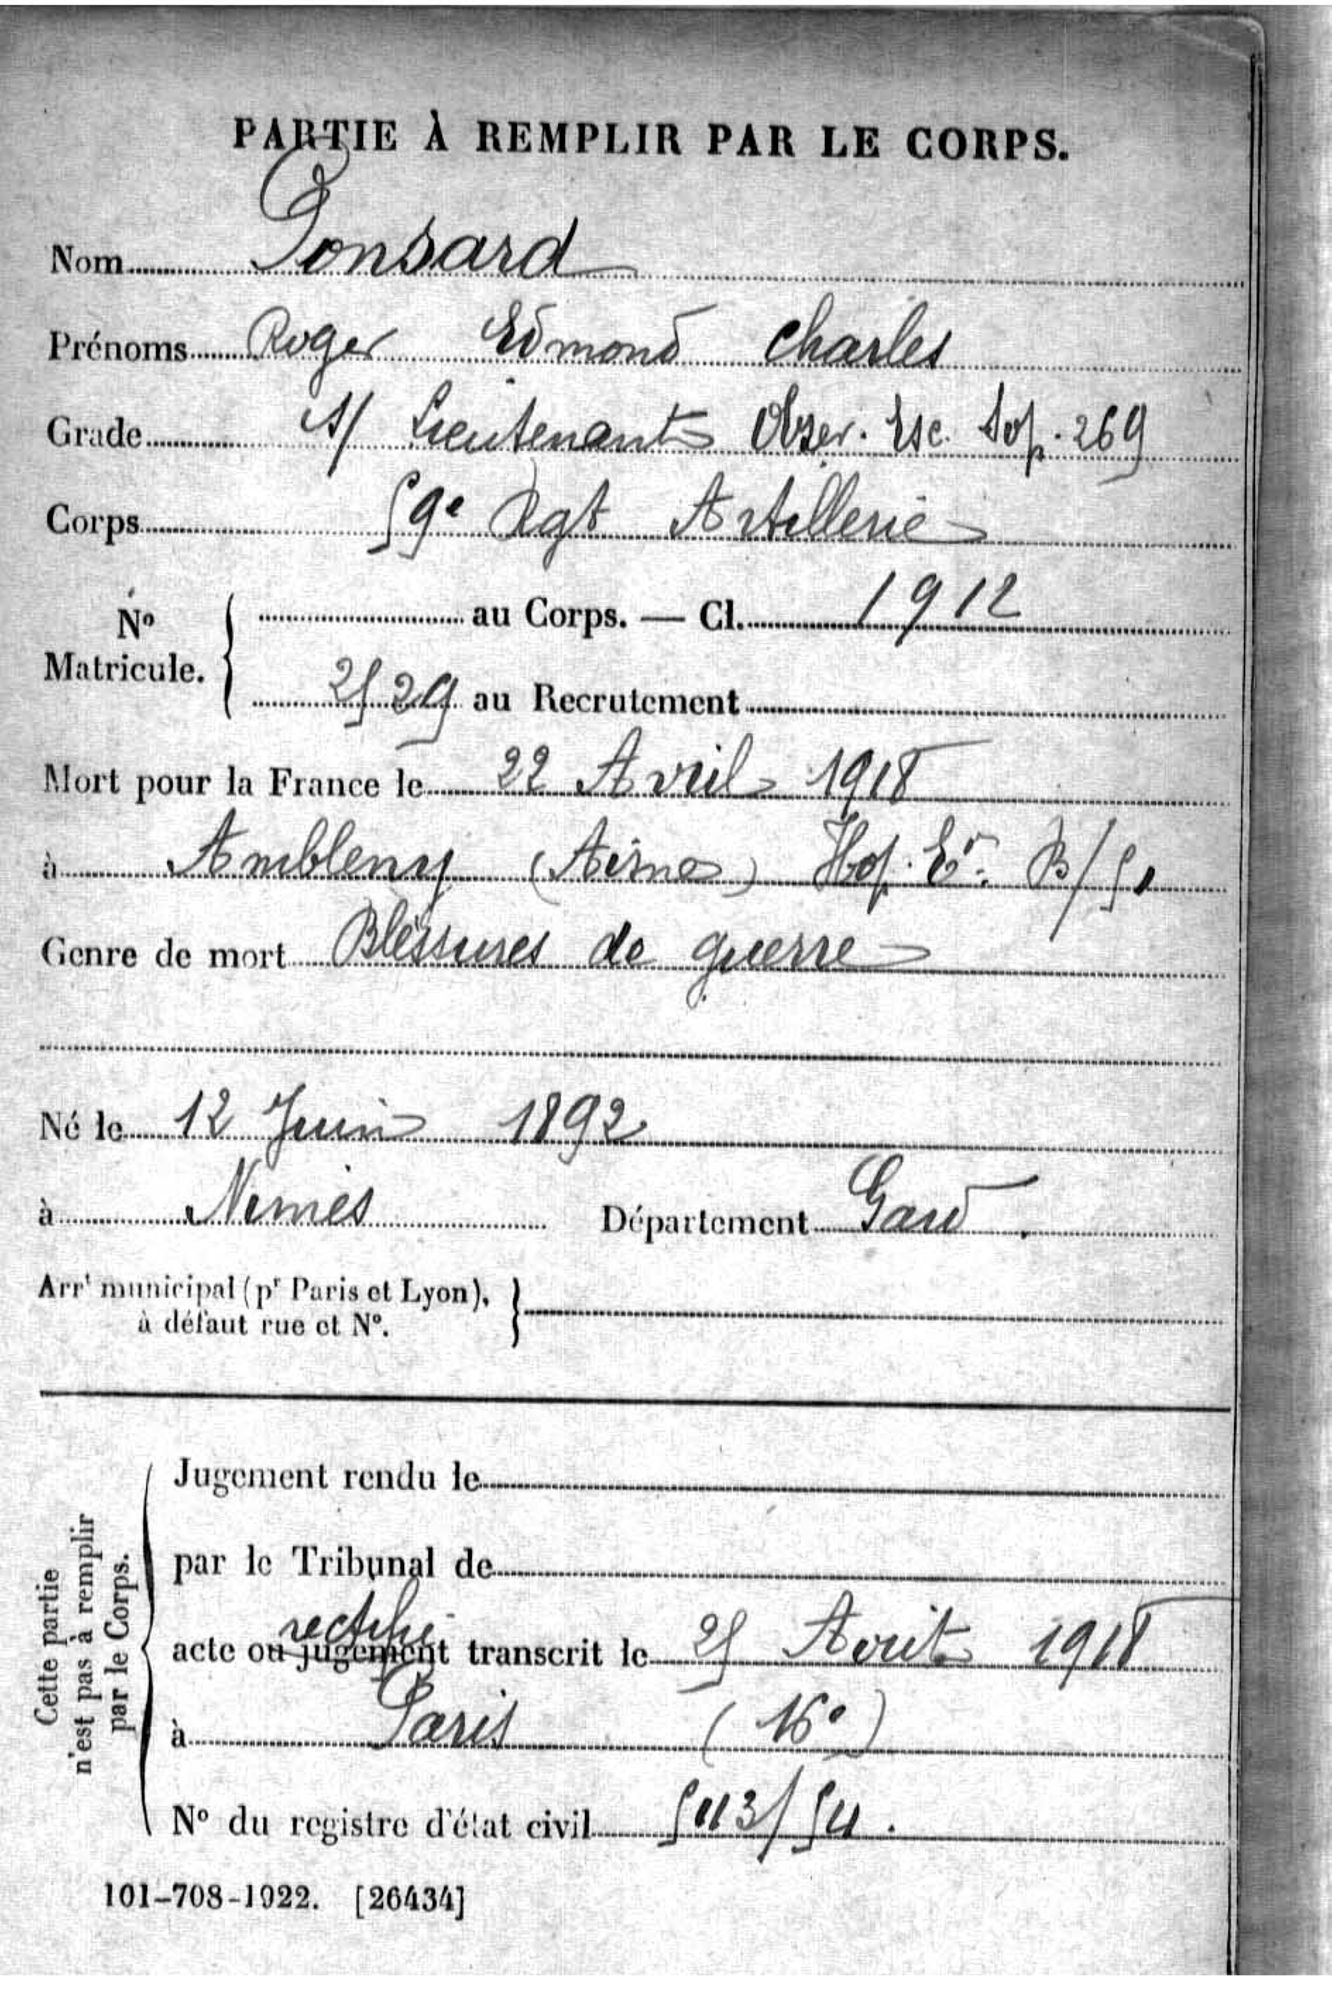 PARTIE À REMPLIR PAR LE CORPS.
Nom Ponsard
Prénoms Roger Edmond Charles
Grade S/ Lieutenant Obser. Esc. Sop. 269
Corps 59e Rgt Artillerie
No Matricule. { au Corps. — Cl. 1912
2529 au Recrutement
Mort pour la France le 22 Avril 1918
à Ambleny (Aisne) Hop. Ev. B/51
Genre de mort Bléssures de guerre
Né le 12 Juin 1892
à Nimes Département Gard.
Arrt municipal (pr Paris et Lyon),
à défaut rue et No. }
Cette partie
n'est pas à remplir
par le Corps.
Jugement rendu le
par le Tribunal de
rectifié
acte ou jugement transcrit le 25 Avril 1918
à Paris (16e)
No du registre d'état civil
101-708-1922. [26434]